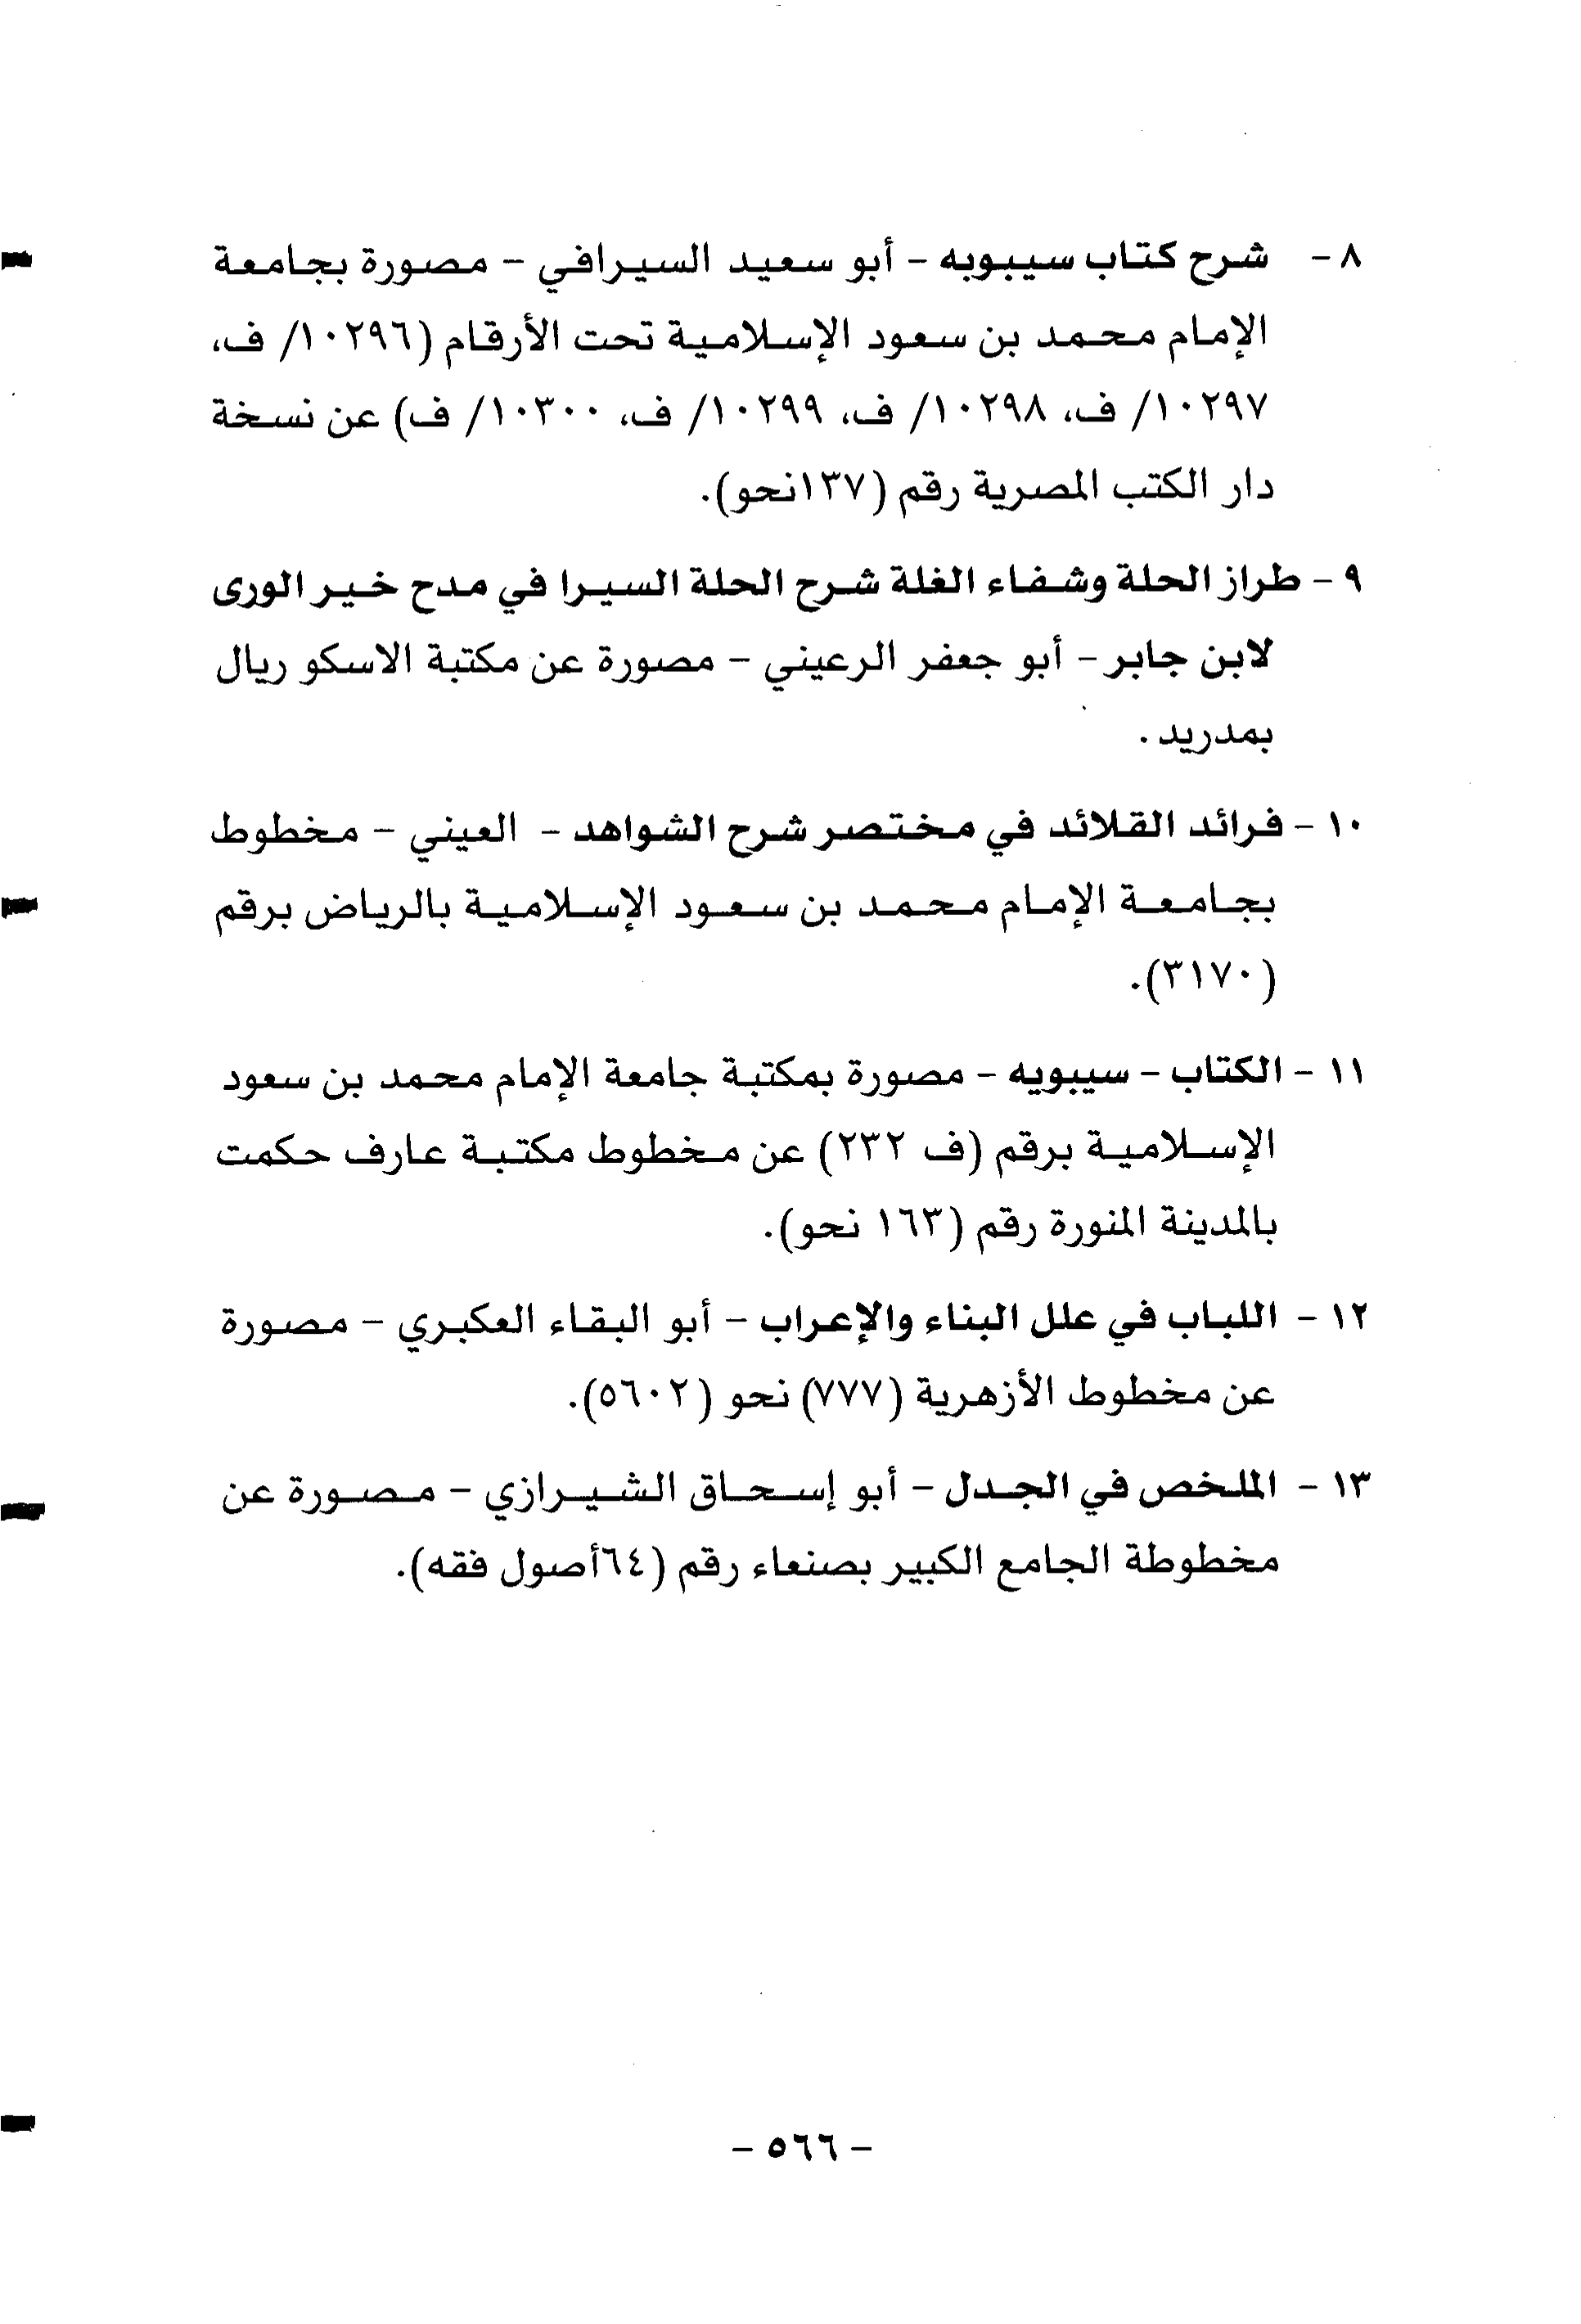 ٨ - شرح كتاب سيبوبه - أبو سعيد السيرافي - مصورة بجامعة
الإمام محمد بن سعود الإسلامية تحت الأرقام (١٠٢٩٦/ ف،
١٠٢٩٧/ ف، ١٠٢٩٨/ ف، ١٠٢٩٩/ ف، ١٠٣٠٠/ ف) عن نسخة
دار الكتب المصرية رقم (١٣٧نحو).
٩ - طراز الحلة وشفاء الغلة شرح الحلة السيرا في مدح خير الورى
لابن جابر - أبو جعفر الرعيني - مصورة عن مكتبة الاسكو ريال
بمدريد .
١٠ - فرائد القلائد في مختصر شرح الشواهد - العيني - مخطوط
بجامعة الإمام محمد بن سعود الإسلامية بالرياض برقم
(٣١٧٠).
١١ - الكتاب - سيبويه - مصورة بمكتبة جامعة الإمام محمد بن سعود
الإسلامية برقم (ف ٢٣٢) عن مخطوط مكتبة عارف حكمت
بالمدينة المنورة رقم (١٦٣ نحو).
١٢ - اللباب في علل البناء والإعراب - أبو البقاء العكبري - مصورة
عن مخطوط الأزهرية (٧٧٧) نحو (٥٦٠٢).
١٣ - الملخص في الجدل - أبو إسحاق الشيرازي - مصورة عن
مخطوطة الجامع الكبير بصنعاء رقم (٦٤أصول فقه).
- ٥٦٦ -